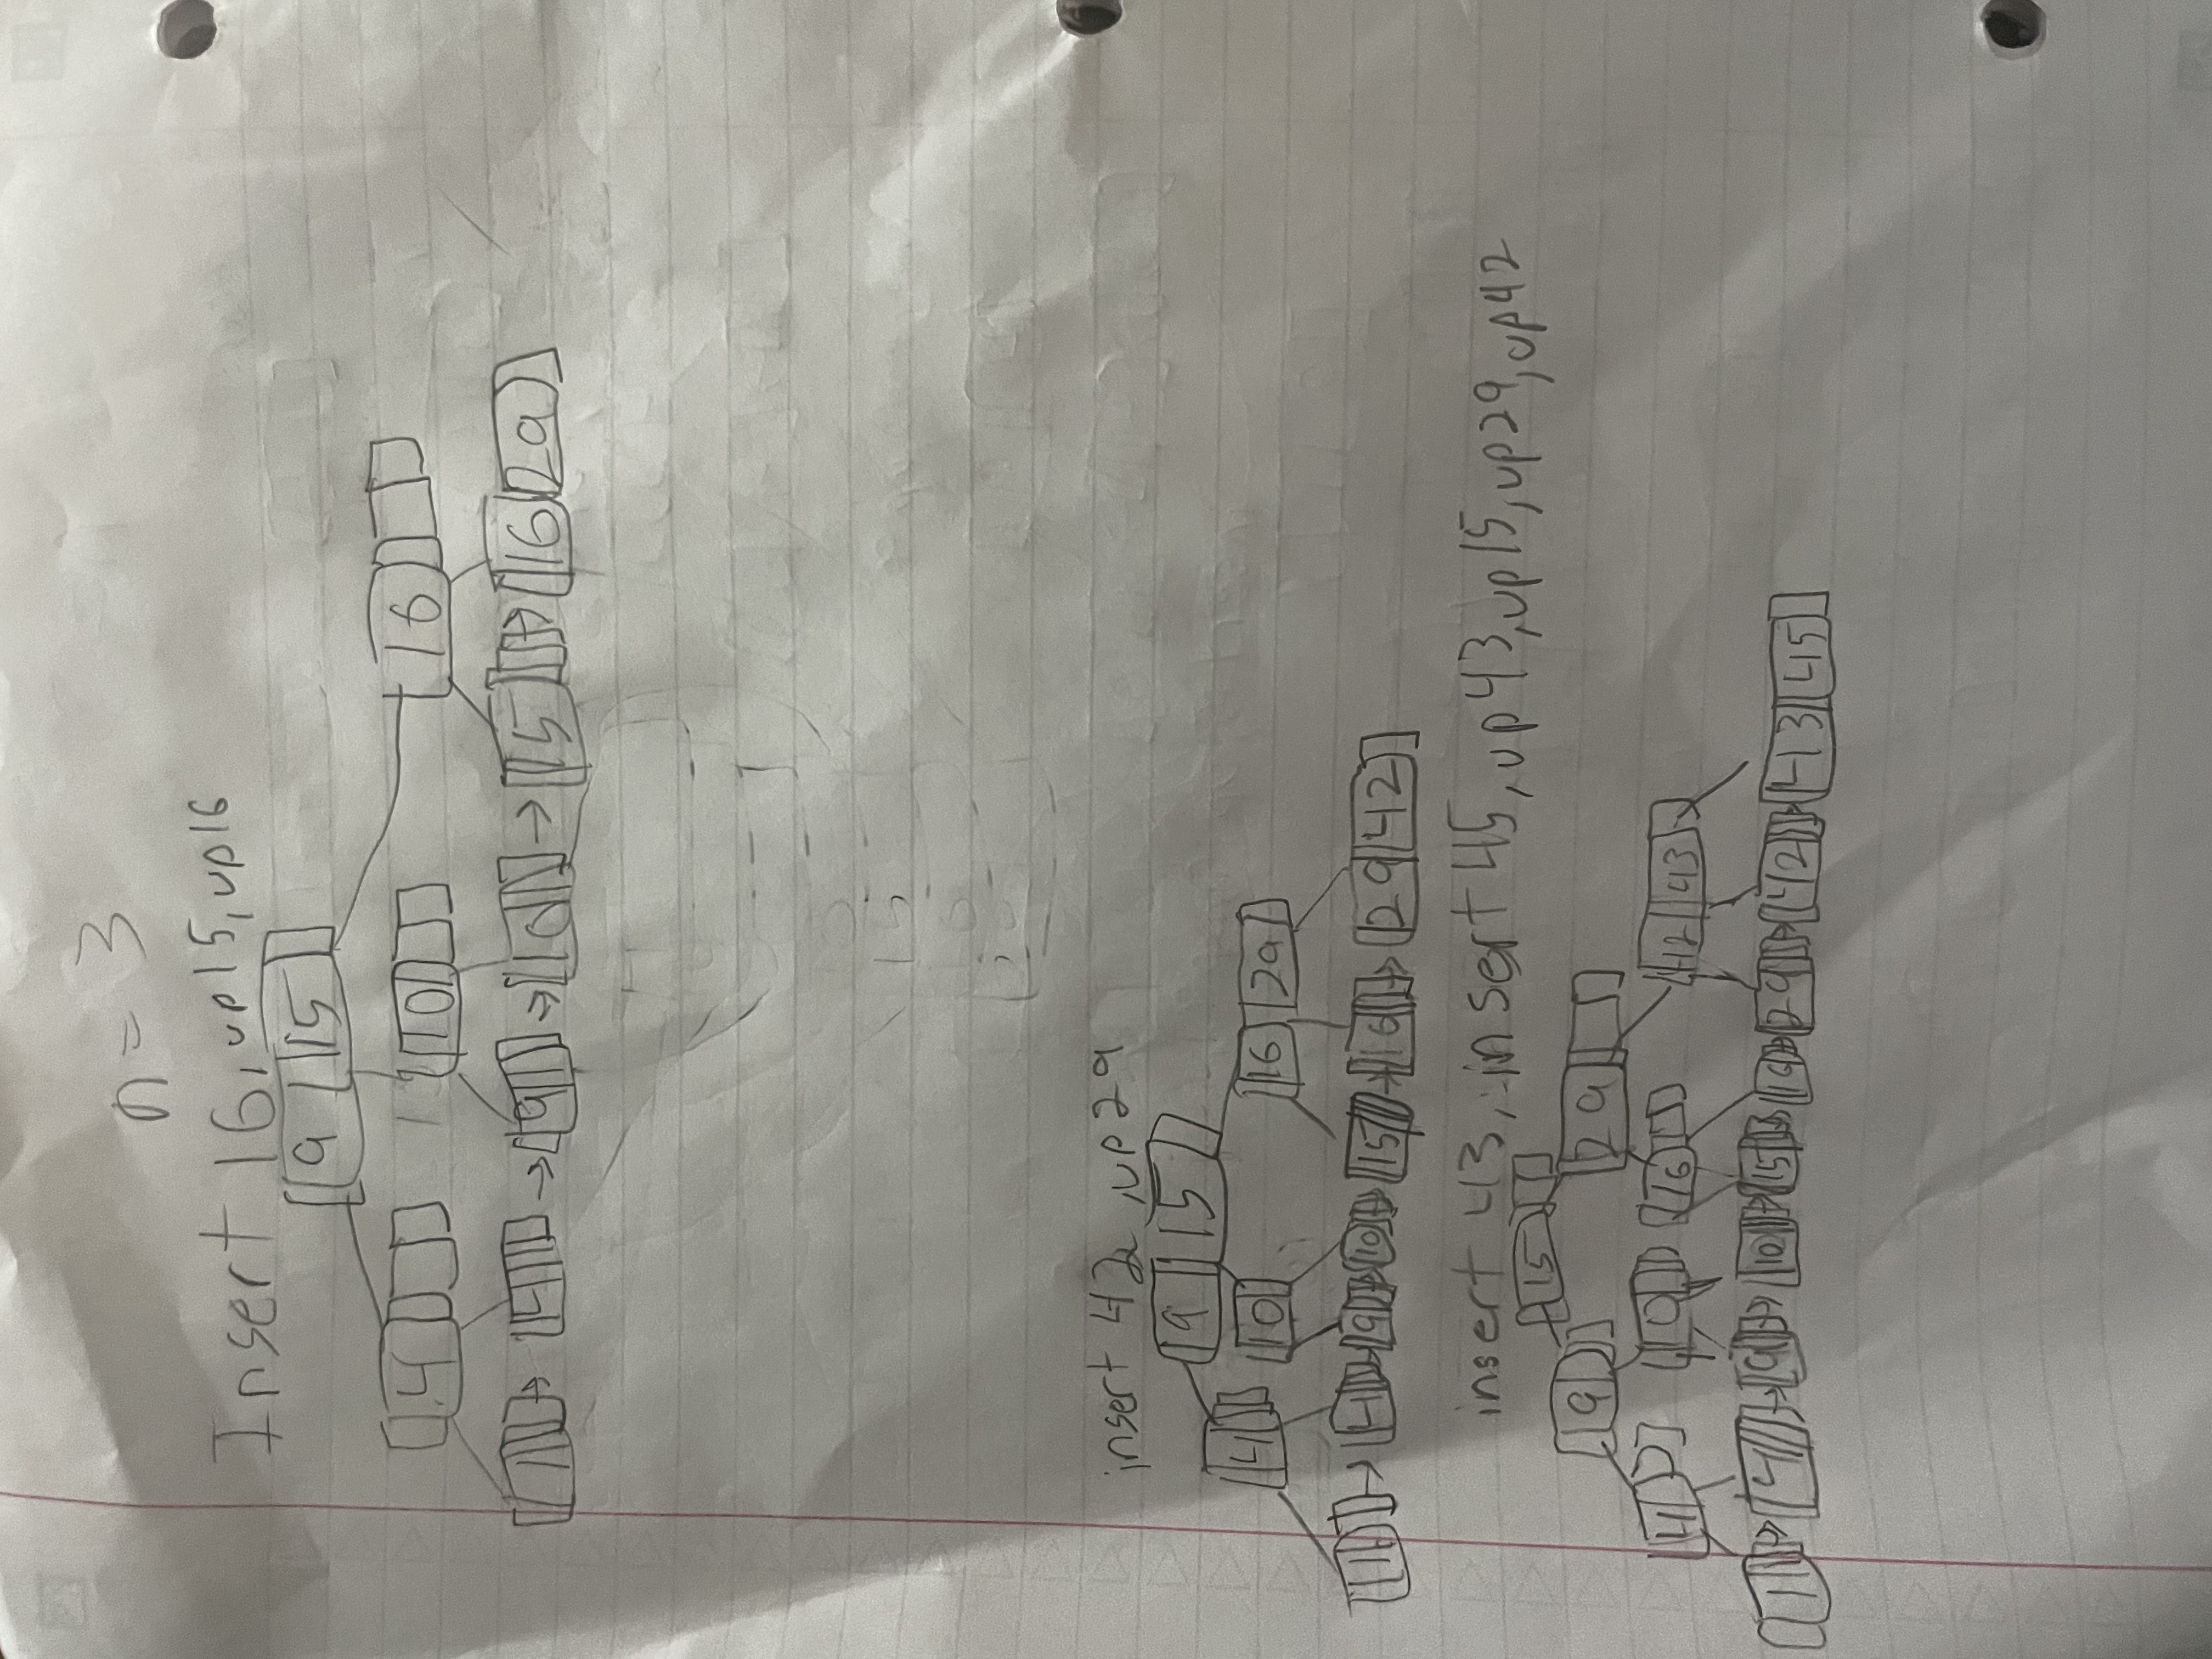 n = 3
Insert 16, up15, up16
9 15
4 10 16
1 4 → 9 → 10 → 15 → 16 29
15
insert 42, up29
9 15
4 10 16 29
1 → 4 → 9 → 10 → 15 → 16 → 29 42
insert 43, insert 45, up43, up15, up29, up42
15
9 29
4 10 16 42 43
1 → 4 → 9 → 10 → 15 → 16 → 29 → 42 → 43 45